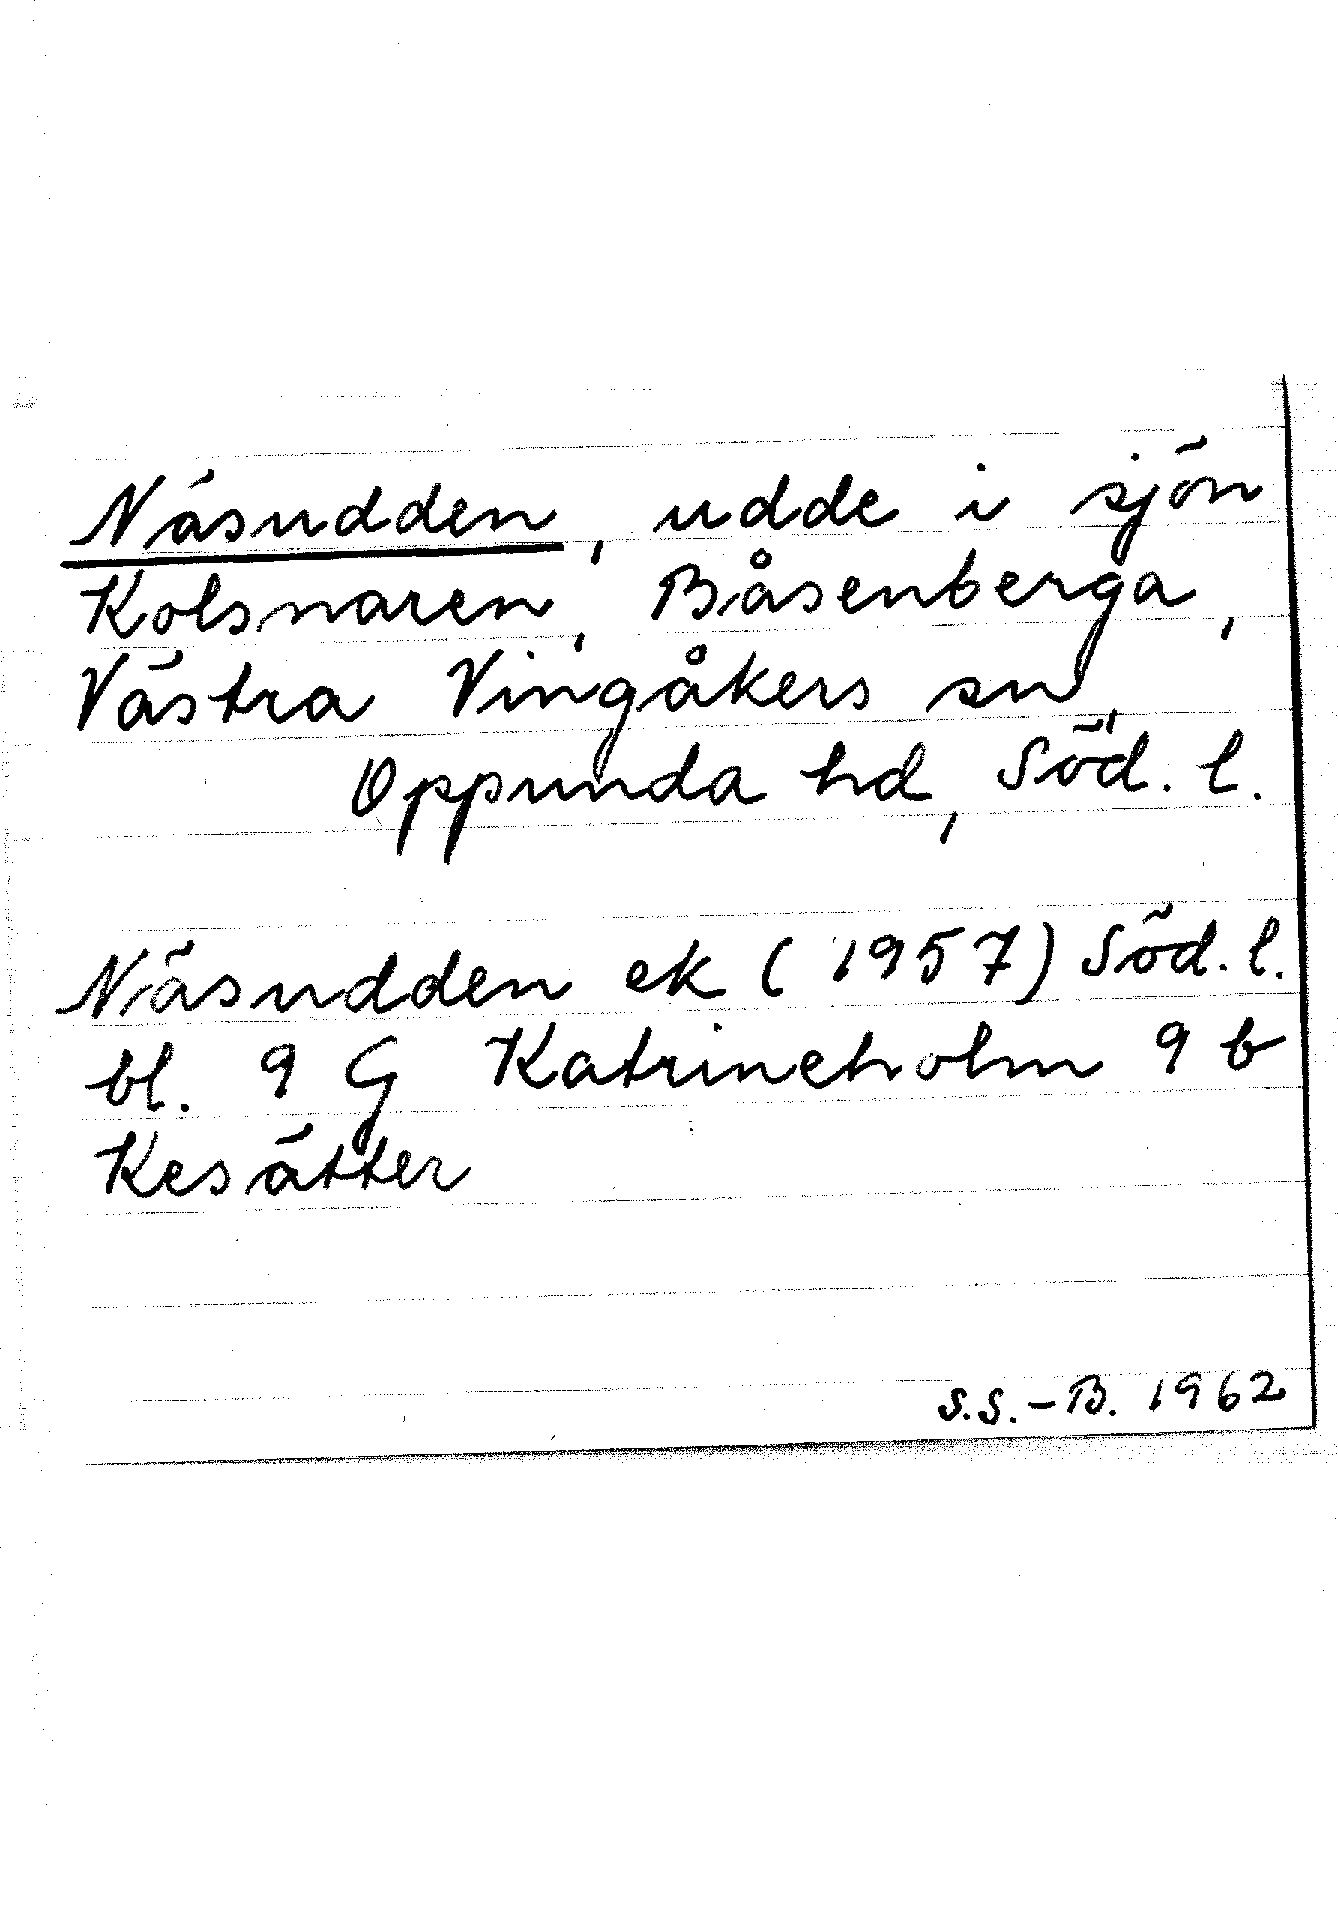 Näsudden, udde i sjön
Kolsnaren, Båsenberga,
Västra Vingåkers sn,
Oppunda hd, Söd. l.
Näsudden ek (1957) Söd. l.
bl. 9 G Katrineholm 9 b
Kesätter
S.S.-B. 1962